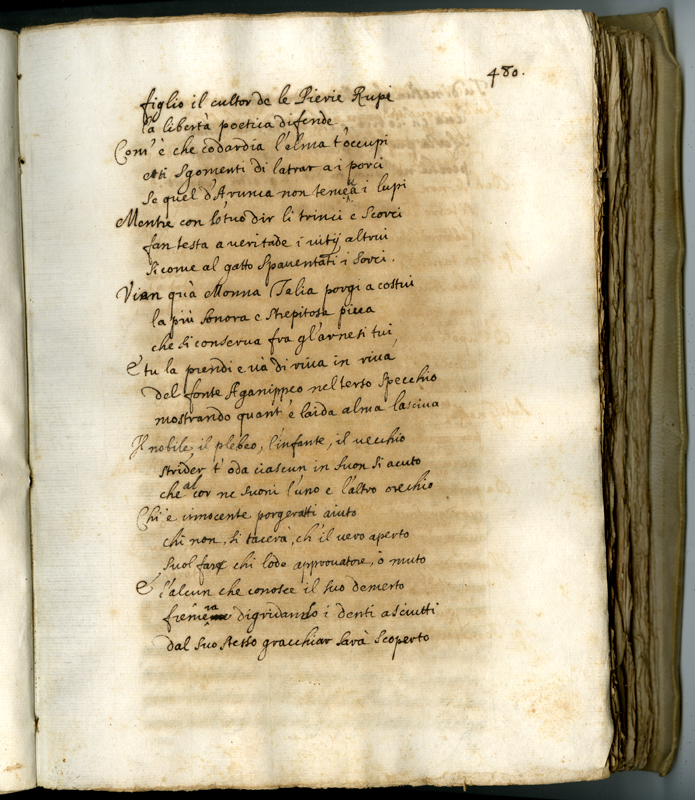 480.
figlio il cultor de le Pierie Rupi
la libertà poetica difende
Com' è che codardia l'alma t'occupi
e ti sgomenti di latrar a i porci
se quel d'Arunca non temea i lupi
Mentre con lo tuo dir li trinci e scorci
fan testa a veritade i vitij altrui
sicome al gatto spaventati i sorci.
Vian quà Monna Talia porgi a costui
la più sonora e strepitosa piva
che si conserva fra gl'arnesi tui
E tu la prendi e và di riva in riva
del fonte Aganippeo nel terso specchio
mostrando quant' è laida alma lasciva
Il nobile, il plebeo, l'infante, il vecchio
strider t'oda ciascun in suon si acuto
che al cor ne suoni l'uno e l'altro orechio
Chi è innocente porgeratti aiuto
chi non, si tacerà, ch'il vero aperto
suol fare chi lode approvatore, ò muto
E s'alcun che conosce il suo demerto
fremerà digridando i denti asciutti
dal suo stesso gracchiar sarà scoperto